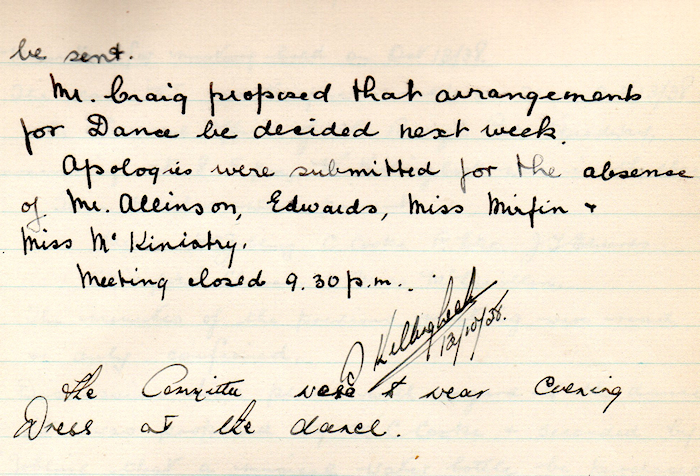 be sent.
Mr. Craig proposed that arrangements
for Dance be decided next week.
Apologies were submitted for the absence
of Mr. Allinson, Edwards, Miss Mirfin +
Miss McKiniatry.
Meeting closed 9.30 p.m.
12/10/38.
The Committee were to wear Evening
Dress at the dance.